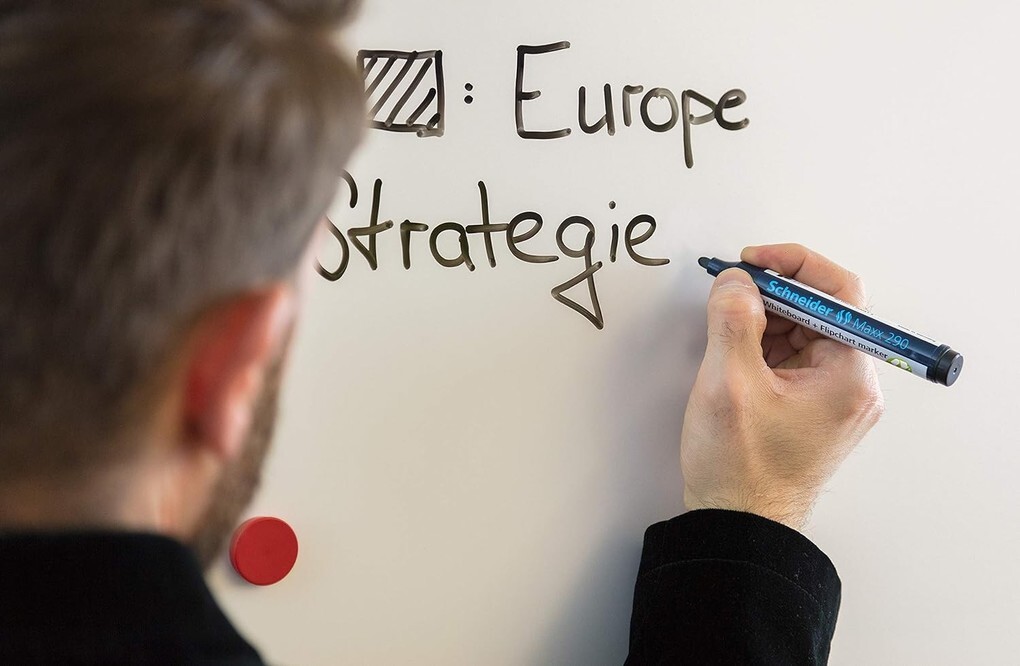 : Europe
Strategie
Schneider Maxx 290
Whiteboard + Flipchart marker